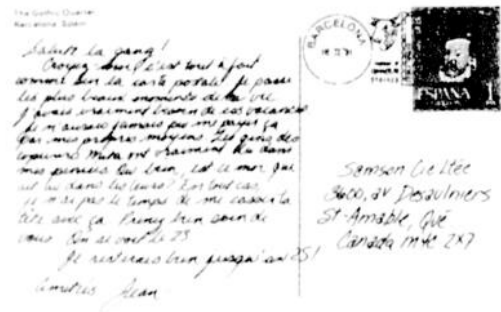 The Gothic Quarter
Barcelona Spain
Salut la gang!
Croyez-moi c'est tout à fait
comme sur la carte postale. Je passe
les plus beaux moments de ma vie
J'avais vraiment besoin de ces vacances
Je n'aurais jamais pu me payer ça
par mes propres moyens. Les gens des
copieurs Mita ont vraiment lu dans
mes pensées. Ou bien, est-ce moi qui
ai lu dans les leurs? En tout cas,
je n'ai pas le temps de me casser la
tête avec ça. Prenez bien soin de
vous. On se voit le 23.
Je resterais bien jusqu'au 25!
Amitiés Jean
BARCELONA
ESPAÑA
1
Samson Cie Ltée
3600, av Desaulniers
St-Amable, Qué
Canada 2X7